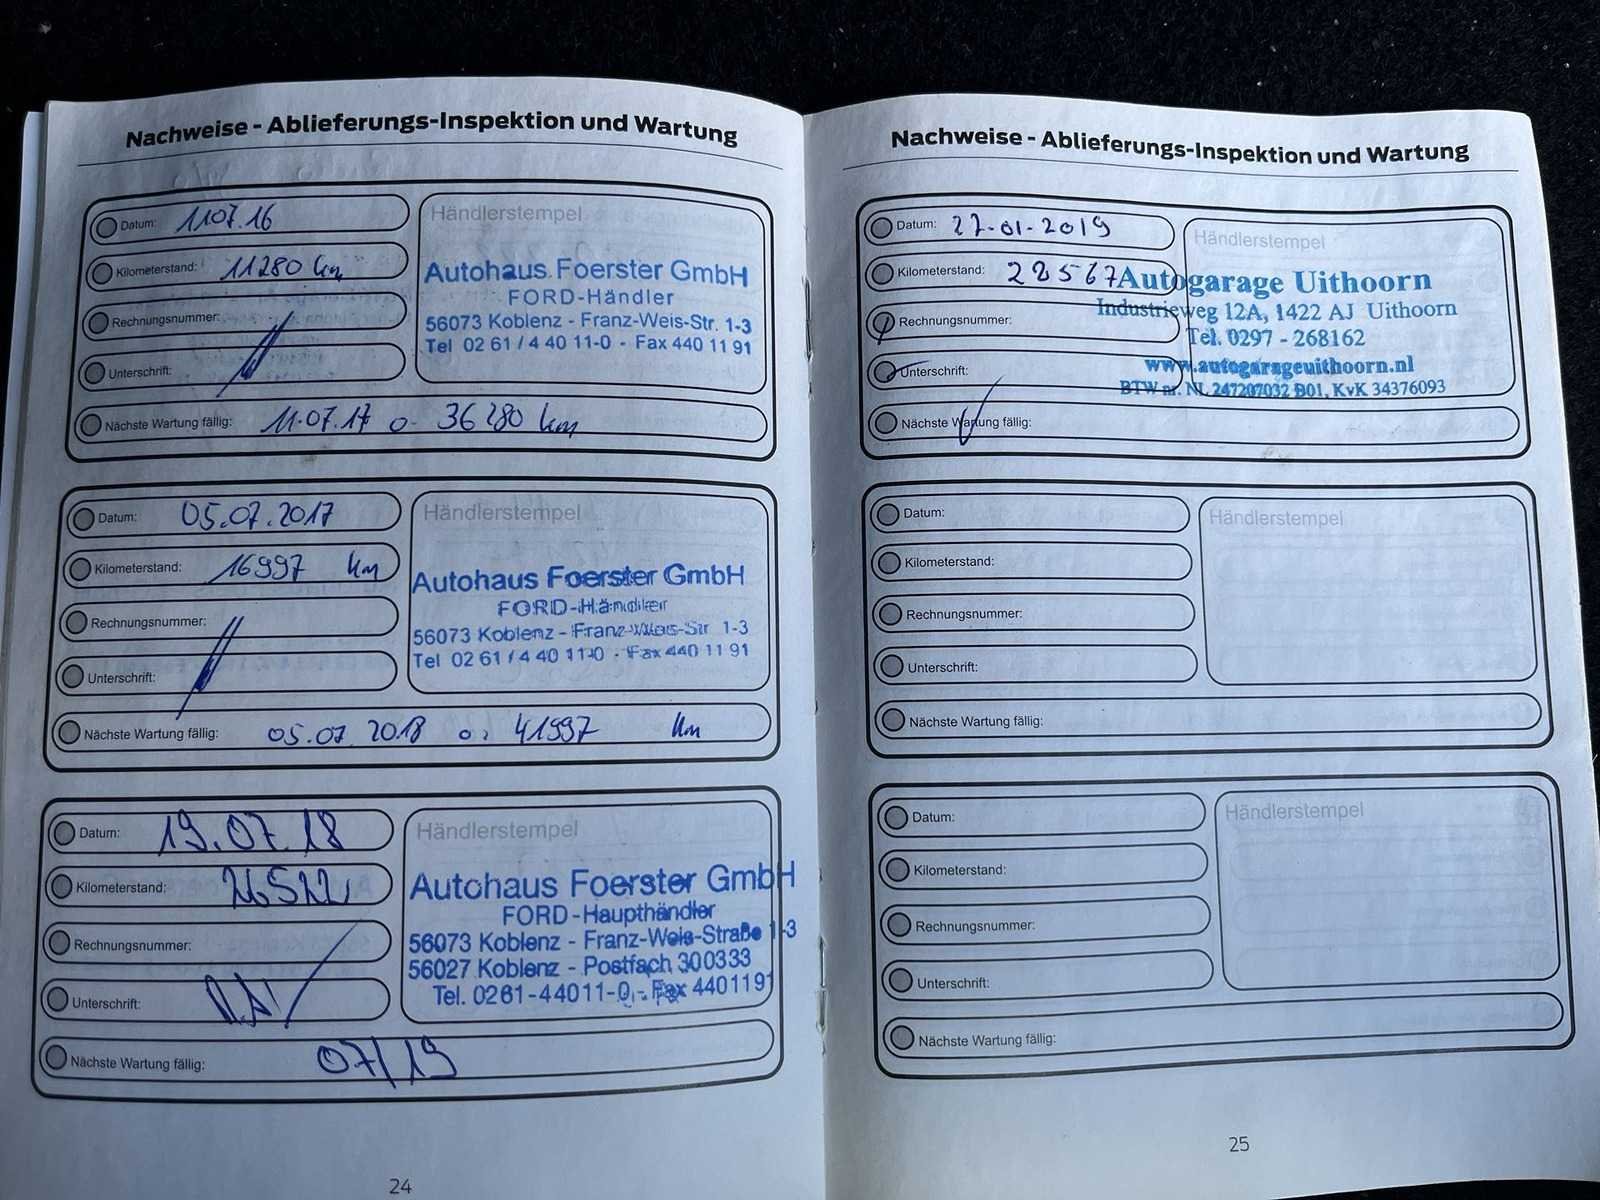 Nachweise - Ablieferungs-Inspektion und Wartung
Datum: 11.07.16
Kilometerstand: 11280 km
Rechnungsnummer:
Unterschrift:
Nächste Wartung fällig: 11.07.17 o. 36280 km
Händlerstempel
Autohaus Foerster GmbH
FORD-Händler
56073 Koblenz - Franz-Weis-Str. 1-3
Tel 02 61 / 4 40 11-0 - Fax 440 11 91
Datum: 05.07.2017
Kilometerstand: 16997 km
Rechnungsnummer:
Unterschrift:
Nächste Wartung fällig: 05.07.2018 o. 41997 km
Händlerstempel
Autohaus Foerster GmbH
FORD-Händler
56073 Koblenz - Franz-Weis-Str 1-3
Tel 02 61 / 4 40 11-0 - Fax 440 11 91
Datum: 19.07.18
Kilometerstand: 26522
Rechnungsnummer:
Unterschrift:
Nächste Wartung fällig: 07/19
Händlerstempel
Autohaus Foerster GmbH
FORD-Haupthändler
56073 Koblenz - Franz-Weis-Straße 1-3
56027 Koblenz - Postfach 300333
Tel. 0261-44011-0 - Fax 4401191
24
Nachweise - Ablieferungs-Inspektion und Wartung
Datum: 27-01-2019
Kilometerstand: 28567
Rechnungsnummer:
Unterschrift:
Nächste Wartung fällig:
Händlerstempel
Autogarage Uithoorn
Industrieweg 12A, 1422 AJ Uithoorn
Tel. 0297 - 268162
www.autogarageuithoorn.nl
BTW nr. NL 247207032 B01, KvK 34376093
Datum:
Kilometerstand:
Rechnungsnummer:
Unterschrift:
Nächste Wartung fällig:
Händlerstempel
Datum:
Kilometerstand:
Rechnungsnummer:
Unterschrift:
Nächste Wartung fällig:
Händlerstempel
25